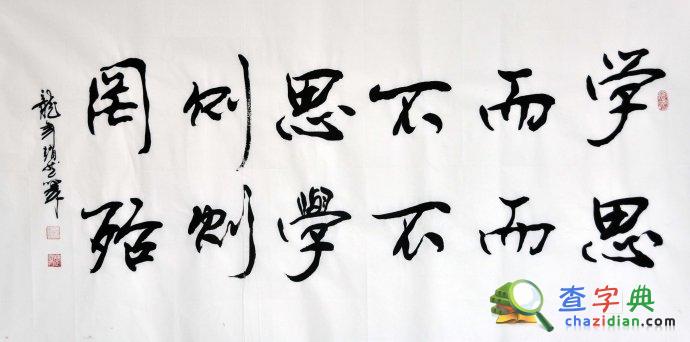 学而不思则罔
思而不學则殆
查字典
chazidian.com